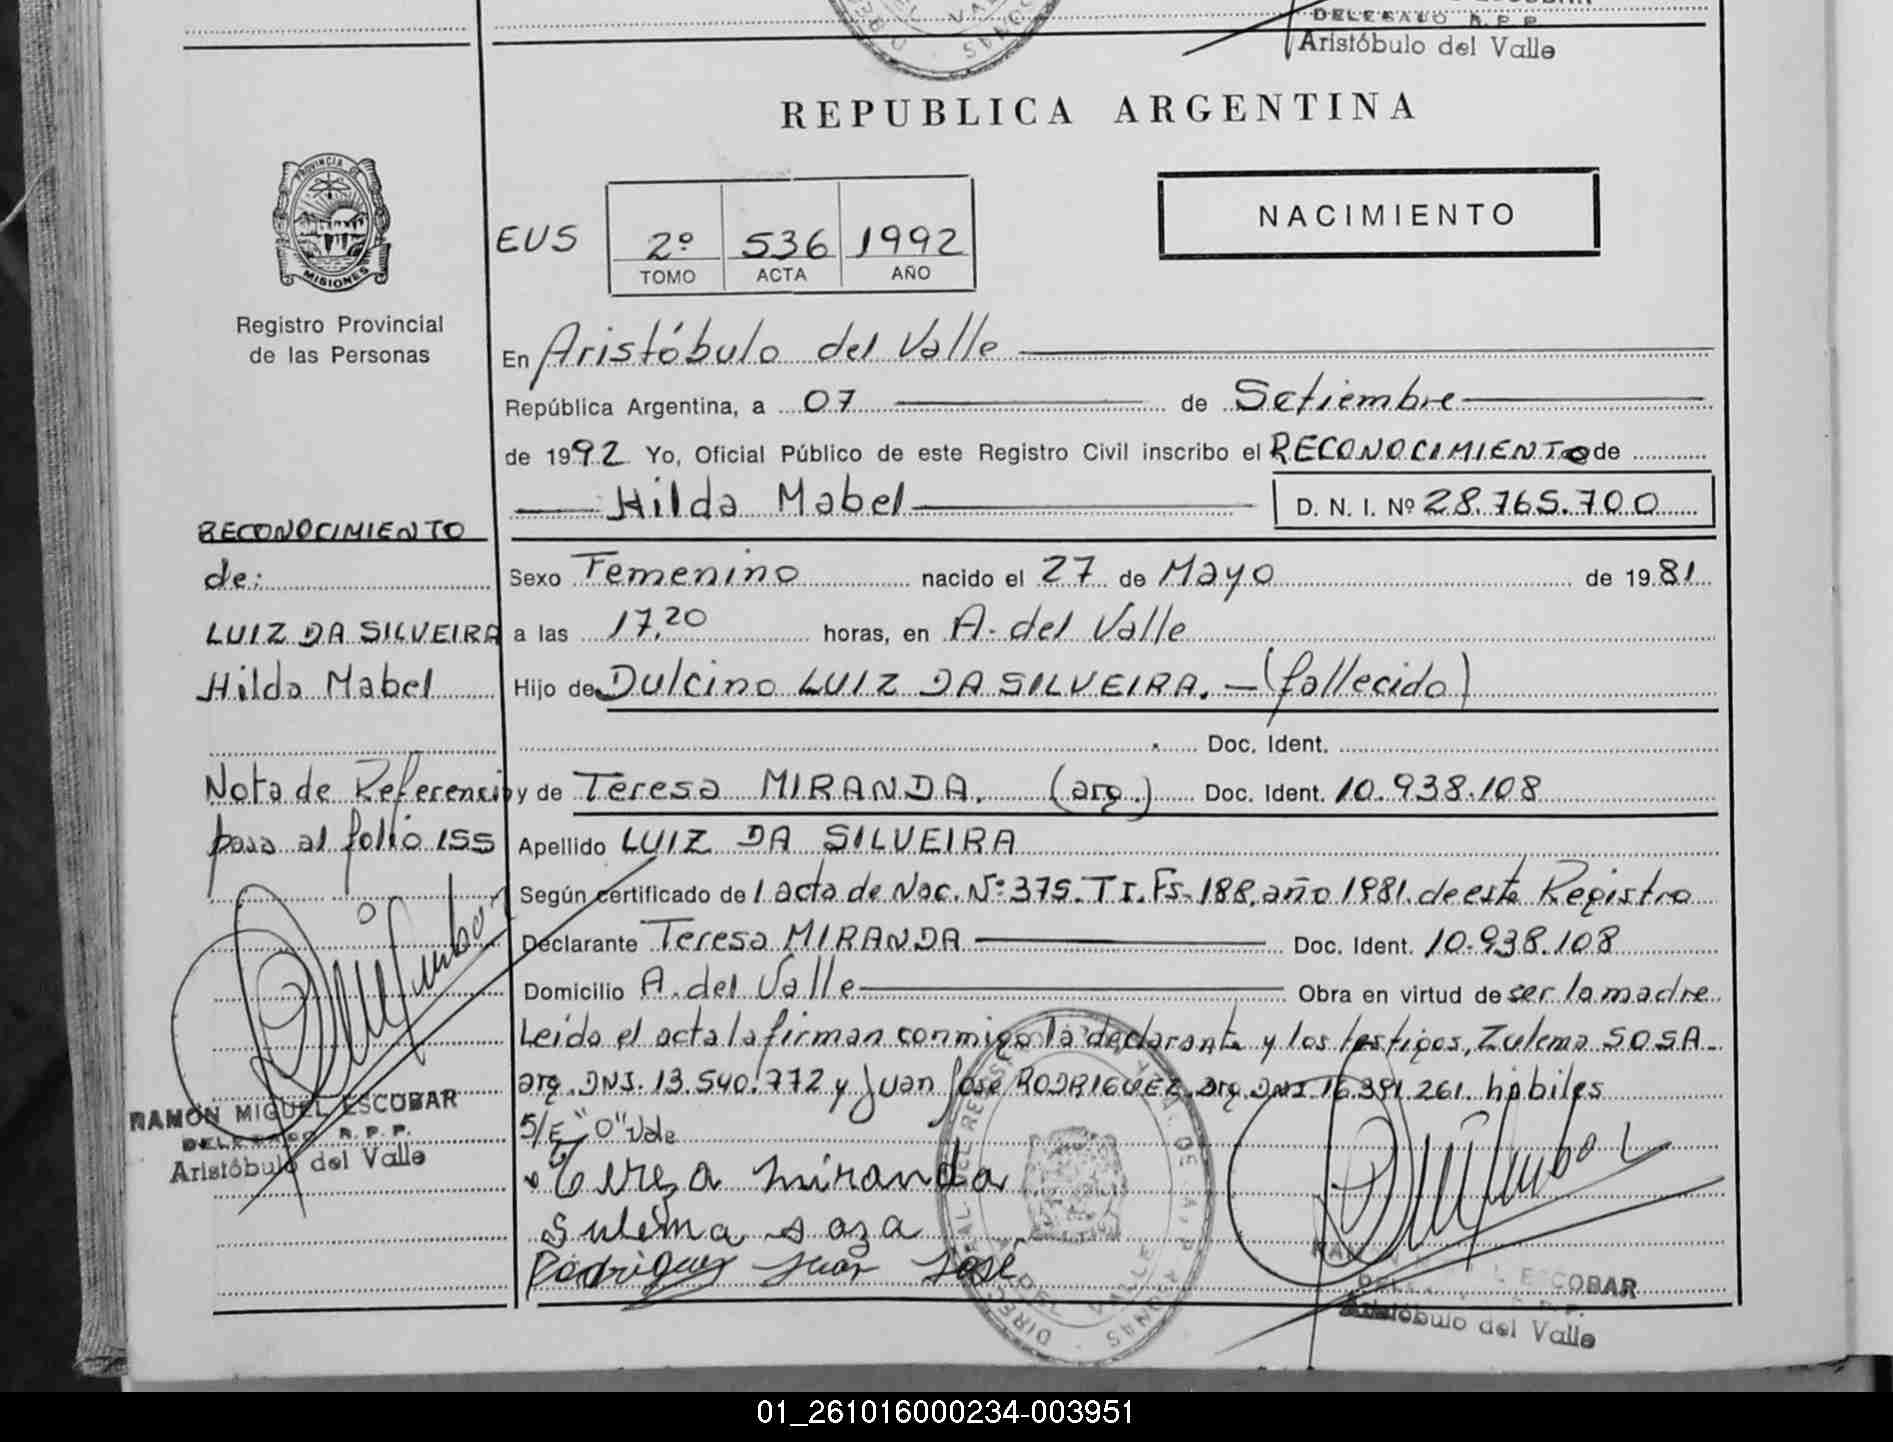 DELEGADO R.P.P.
Aristóbulo del Valle
REPUBLICA ARGENTINA
PROVINCIA DE
MISIONES
Registro Provincial
de las Personas
EUS
2º 536 1992
TOMO ACTA AÑO
NACIMIENTO
En Aristóbulo del Valle
República Argentina, a 07 de Setiembre
de 1992 Yo, Oficial Público de este Registro Civil inscribo el RECONOCIMIENTO de
Hilda Mabel D. N. I. Nº 28.765.700
RECONOCIMIENTO
de:
LUIZ DA SILVEIRA
Hilda Mabel
Nota de Referencia
pasa al folio 155
RAMÓN MIGUEL ESCOBAR
DELEGADO R.P.P.
Aristóbulo del Valle
Sexo Femenino nacido el 27 de Mayo de 1981
a las 17,20 horas, en A. del Valle
Hijo de Dulcino LUIZ DA SILVEIRA. — (fallecido)
Doc. Ident.
y de Teresa MIRANDA. (arg.) Doc. Ident. 10.938.108
Apellido LUIZ DA SILVEIRA
Según certificado de l acta de Nac. Nº 375. T I. Fs. 188, año 1981. de este Registro
Declarante Teresa MIRANDA Doc. Ident. 10.938.108
Domicilio A. del Valle Obra en virtud de ser la madre
Leída el acta la firman conmigo la declarante y los testigos, Zulema SOSA.
arg. DNI. 13.540.772 y Juan José RODRIGUEZ, arg. DNI 16.391.261. hábiles
S/E "O" Vale
Tereza Miranda
Sulema Soza
Rodriguez Juan José
ESCOBAR
Aristóbulo del Valle
01_261016000234-003951